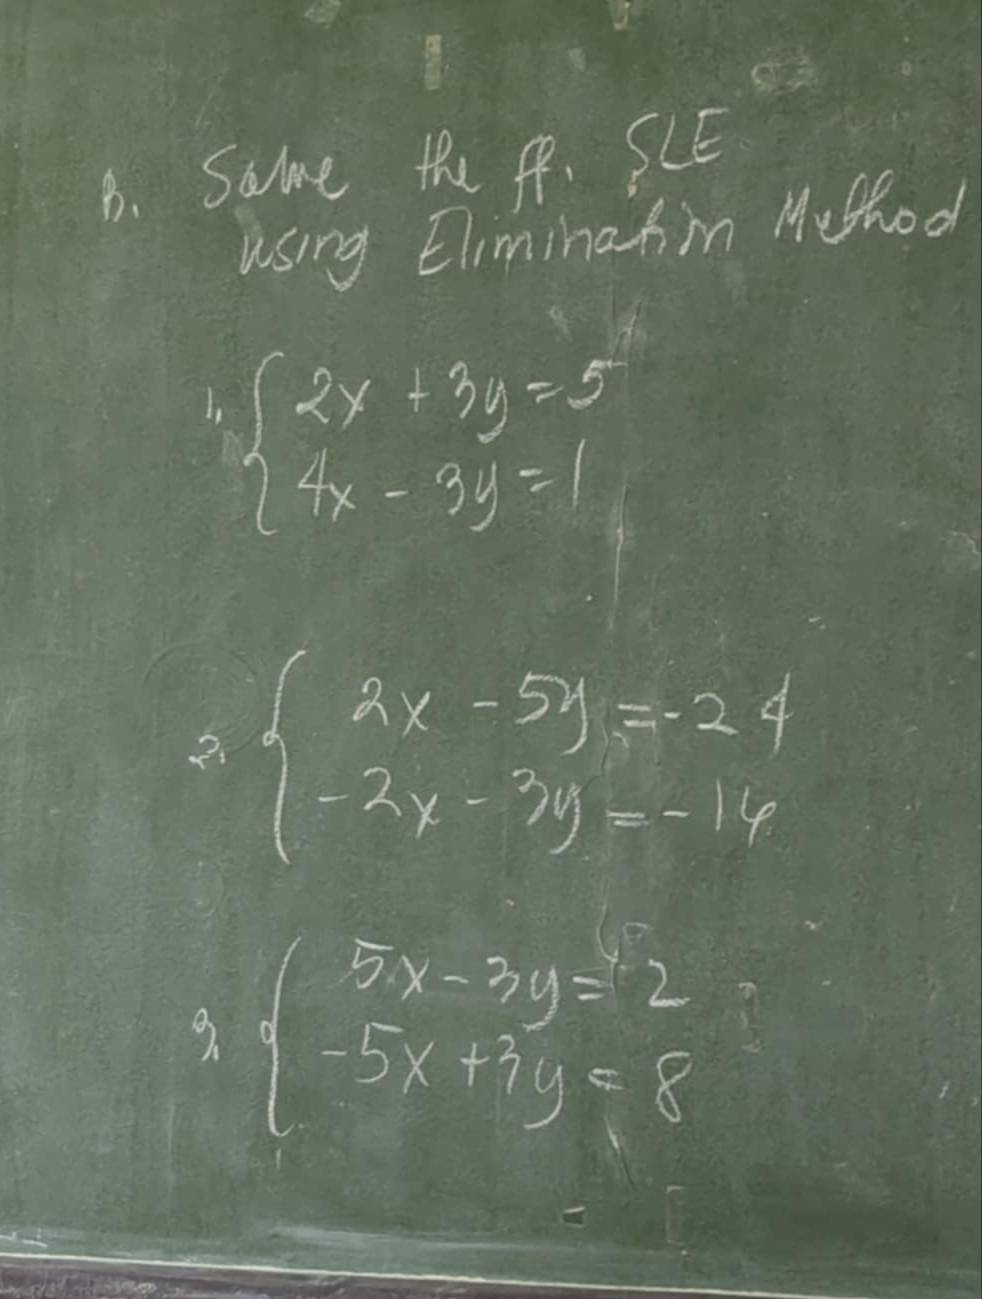 B. Solve the ff. SLE
using Elimination Method
1. { 2x + 3y = 5
4x - 3y = 1
2. { 2x - 5y = -24
-2x - 3y = -14
3. { 5x - 3y = 2
-5x + 3y = 8